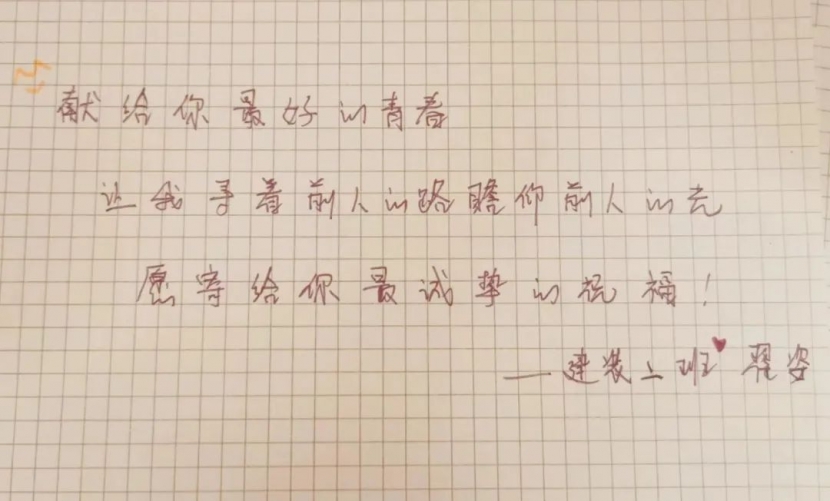 献给你最好的青春
让我寻着前人的路瞻仰前人的光
愿寄给你最诚挚的祝福！
——建装上班 翠姿